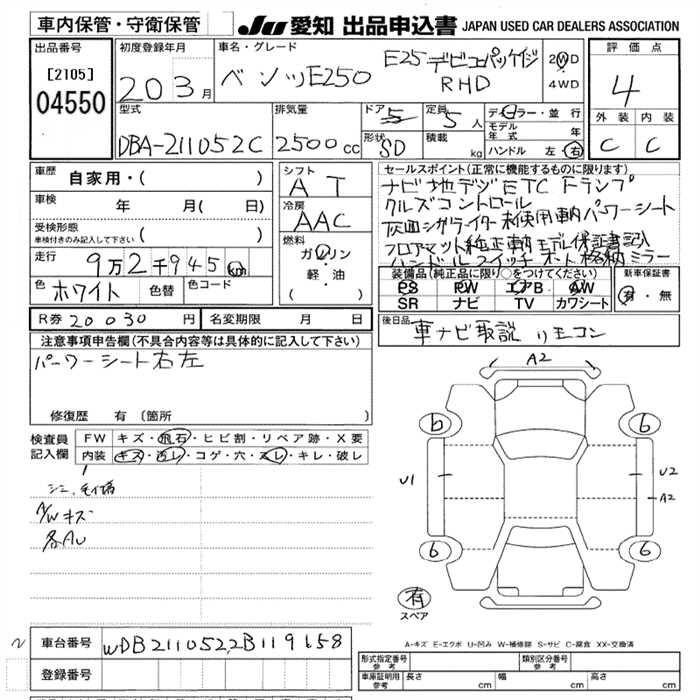 車内保管・守衛保管 JU 愛知 出品申込書 JAPAN USED CAR DEALERS ASSOCIATION
出品番号 [2105] 04550
初度登録年月 20 3月
車名・グレード ベンツE250 E25 デビューパッケイジ RHD
2WD 4WD
評価点 4
外装 C 内装 C
型式 DBA-211052C
排気量 2500cc
ドア 5 形状 SD
定員 5人 積載 kg
ディーラー・並行
モデル年式 年
ハンドル 左・右
車歴 自家用・( )
車検 年 月( 日)
受検形態 車検付きのみ記入して下さい ( )
走行 9万2千945km
色 ホワイト 色替 色コード
シフト AT
冷房 AAC
燃料 ガソリン 軽・油 ( )
セールスポイント(正常に機能するものに限ります)
ナビ 地デジ ETC Fランプ
クルズコントロール
灰皿シガライター未使用車内 パワーシート
フロアマット純正 車内モデル保証書記入
ハンドルスイッチ オート格納ミラー
装備品(純正品に限り○をつけてください)
PS PW エアB AW
SR ナビ TV カワシート
新車保証書 有・無
R券 20030円 名変期限 月 日
後日品 車ナビ取説 リモコン
注意事項申告欄(不具合内容等は具体的に記入して下さい)
パーワーシート右左
修復歴 有 (箇所 )
検査員記入欄
FW キズ・飛石・ヒビ割・リペア跡・X要
内装 キズ・汚レ・コゲ・穴・スレ・キレ・破レ
A/Wキズ
各AU
A2
6 6
U1 U2
A2
6 6
有 スペア
A-キズ E-エクボ U-凹み W-補修跡 S-サビ C-腐食 XX-交換済
車台番号 WDB2110522B119658
登録番号
形式指定番号 参考 類別区分番号 参考
車庫証明用 参考 長さ cm 幅 cm 高さ cm